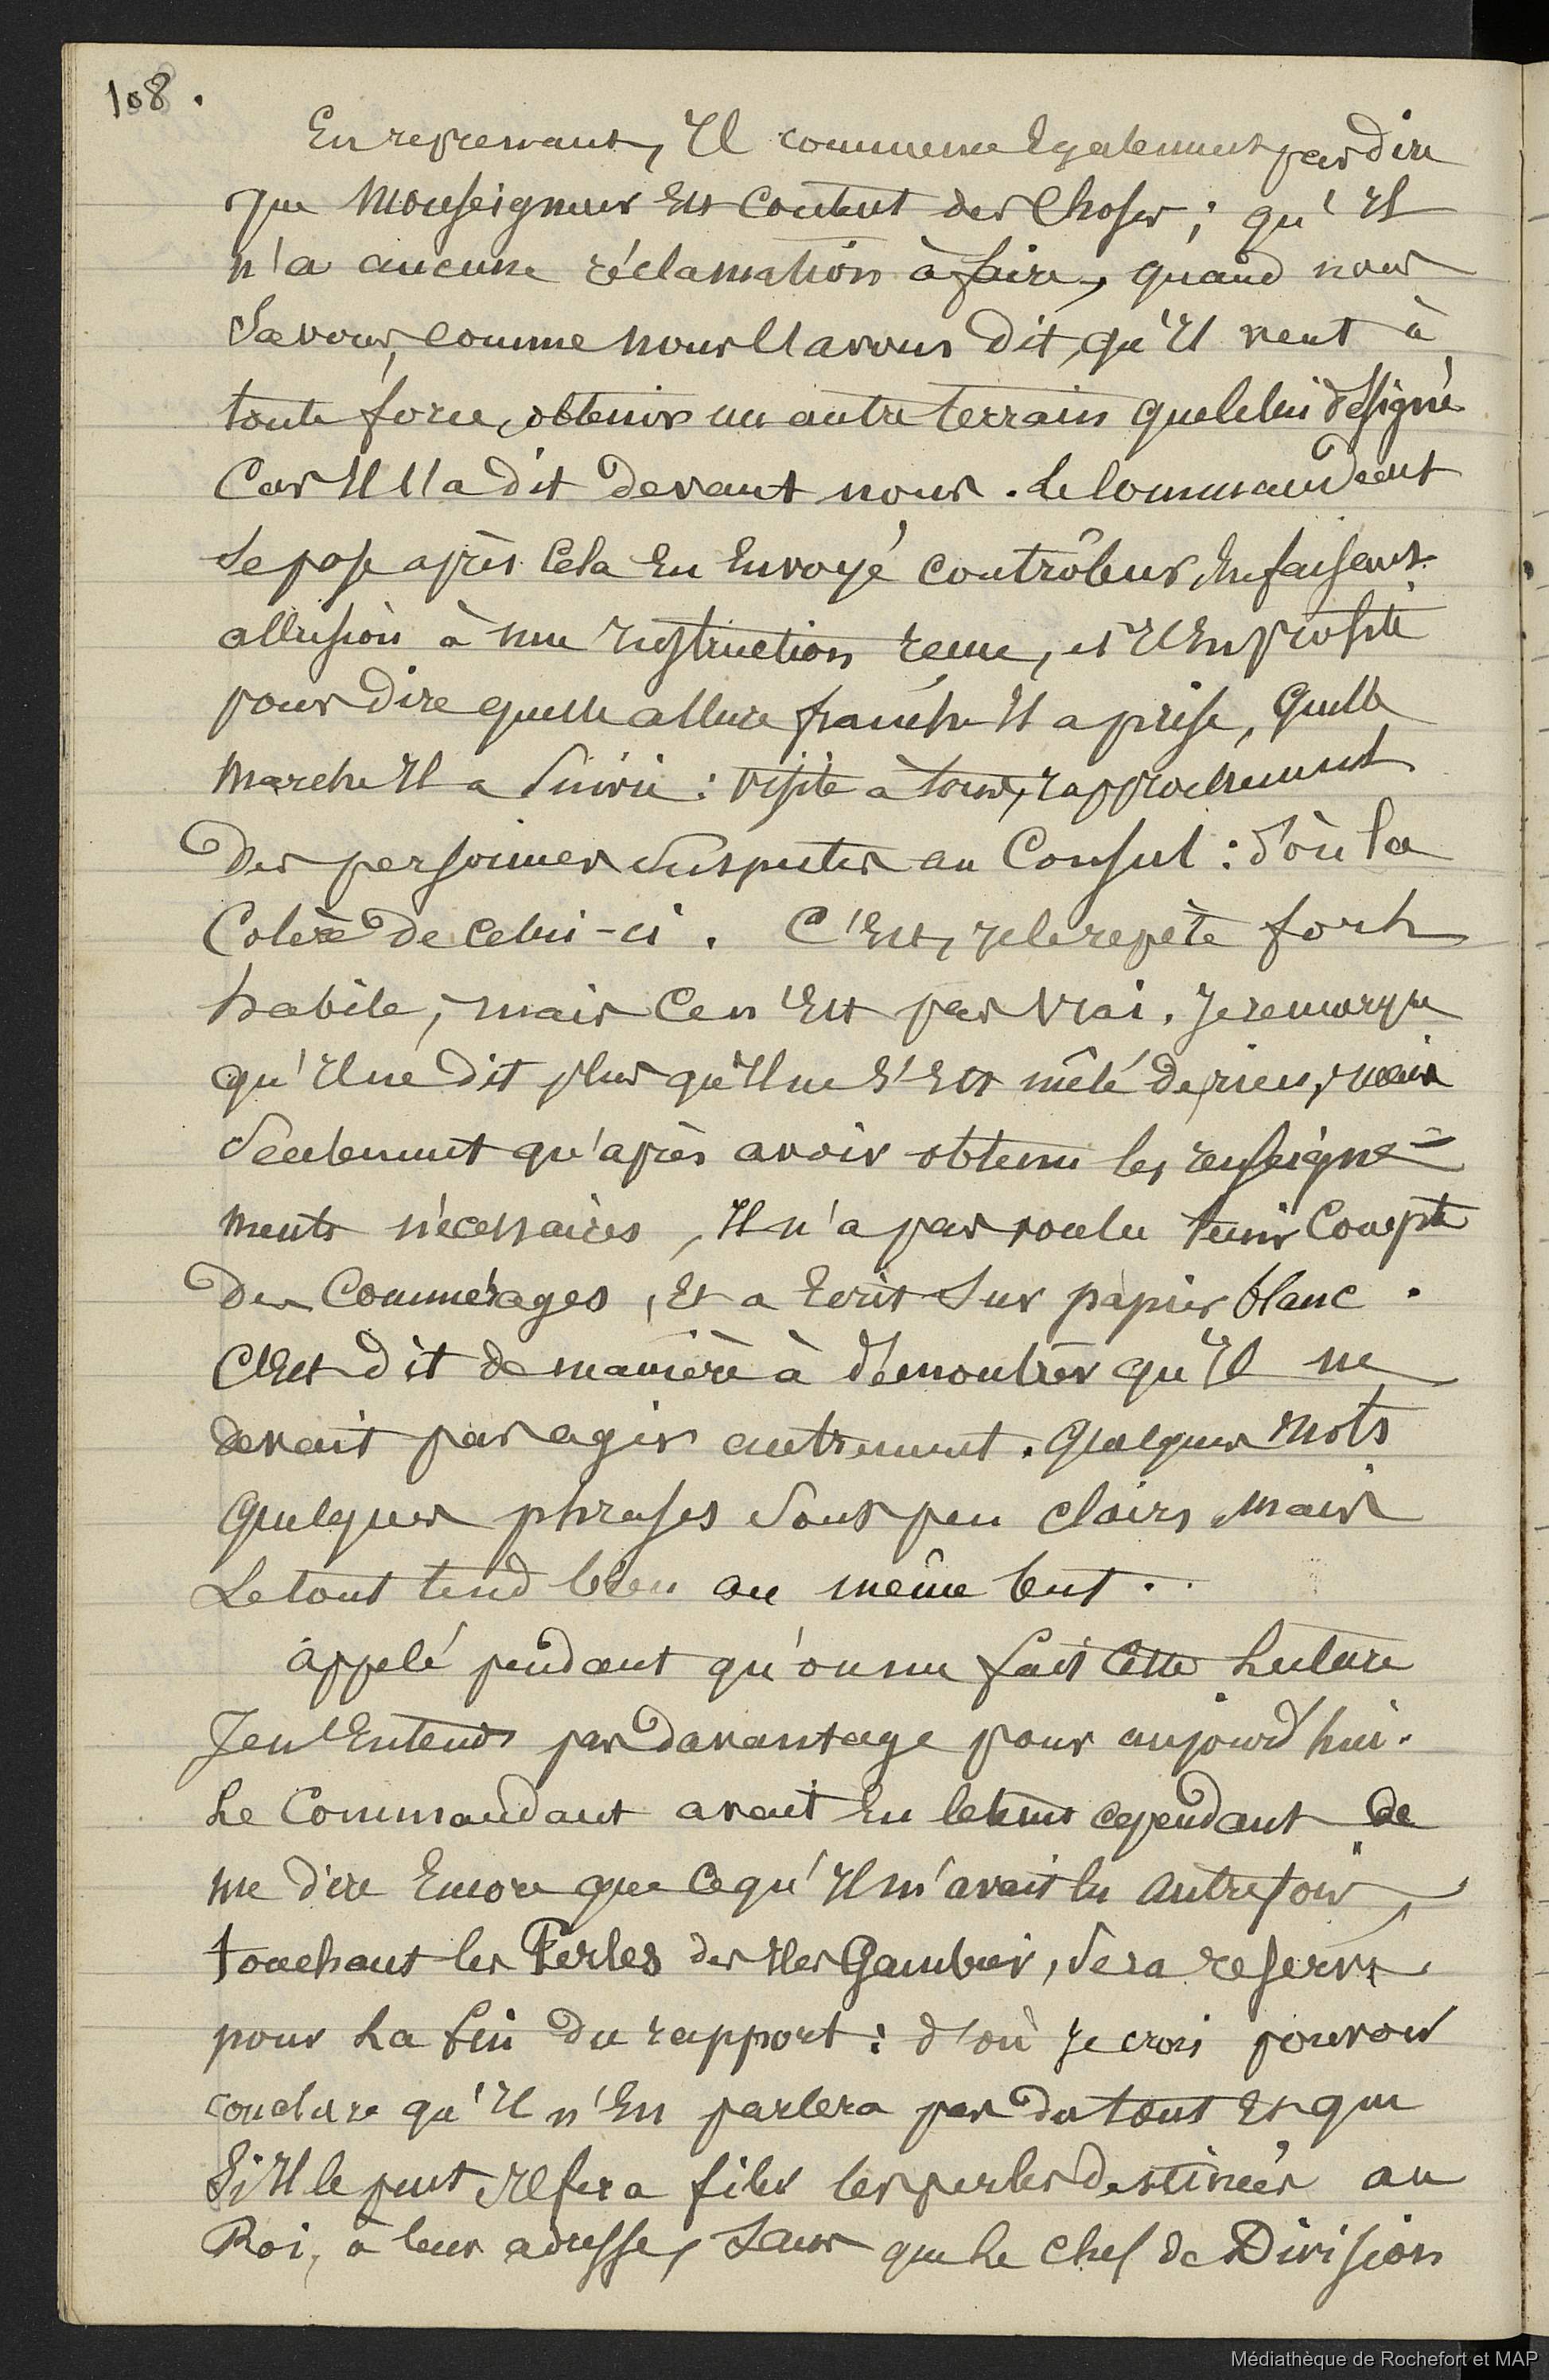 108.
En reprenant, Il commence également par dire
que Monseigneur Est Content des Choses; qu'Il
n'a aucune réclamation à faire, quand nous
Savons, comme nous l'avons dit, qu'Il veut à
toute force, obtenir un autre terrain que celui désigné
Car Il l'a dit devant nous. Le Commandant
Se pose après Cela En Envoyé contrôleur, En faisant
allusion à une Instruction reçue, et Il En profite
pour dire quelle allure franche Il a prise, Quelle
marche Il a Suivie : visite à tous, rapprochement
des personnes Suspectes au Consul : d'où la
Colère de Celui-ci. C'Est, je le repète fort
habile, mais Ce n'Est pas Vrai. Je remarque
qu'Il ne dit plus qu'Il ne S'Est mêlé de rien, mais
Seulement qu'après avoir obtenu les renseigne=
ments nécessaires, Il n'a pas voulu tenir Compte
des Commérages, Et a Ecrit Sur papier blanc.
C'Est dit de manière à démontrer qu'Il ne
devait pas agir autrement. Quelques mots
Quelques phrases Sont peu clairs, mais
Le tout tend bien au même but..
Appelé pendant qu'on me fait Cette Lecture
Je n'Entends pas davantage pour aujourd'hui.
Le Commandant avait Eu le tems cependant de
me dire Encore que Ce qu'Il m'avait lu Autrefois,
touchant les Perles des Iles Gambier, Sera réservé
pour La fin du rapport : d'où Je crois pouvoir
conclure qu'Il n'En parlera pas du tout Et que
Si Il le peut Il fera filer les perles destinées au
Roi, à leur adresse, Sans que Le Chef de Division
Médiathèque de Rochefort et MAP